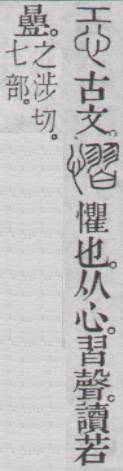 𢖶、古文。慴懼也。从心。習聲。讀若
疊。之涉切。
七部。